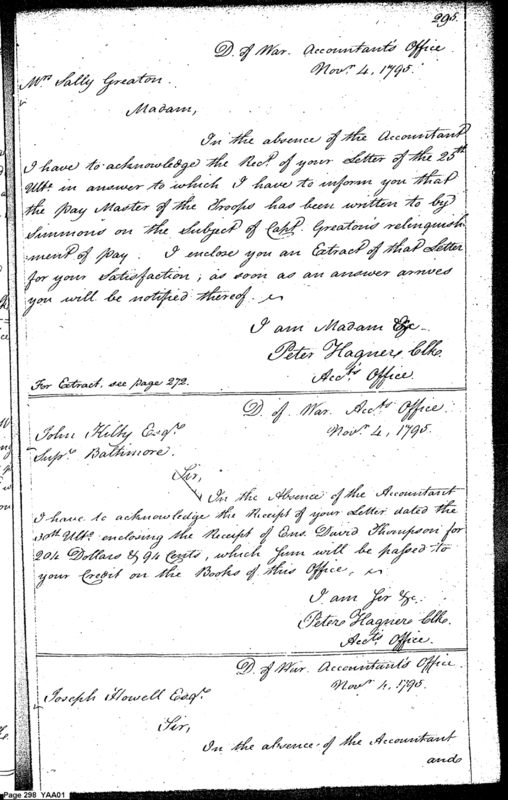 295.
D. of War. Accountant's Office
Novr. 4, 1795.
Mrs Sally Greaton.
Madam,
In the absence of the Accountant
I have to acknowledge the Rect. of your Letter of the 25th
Ulto. in answer to which I have to inform you that
the Pay Master of the Troops has been written to by
Simmons on the Subject of Capt. Greaton's relinquish
ment of pay. I enclose you an Extract of that Letter
for your Satisfaction; as soon as an answer arrives
you will be notified thereof.
I am Madam &c.
Peter Hagner Clk.
Acct's Office.
For Extract, see page 272.
D. of War. Accts Office.
Novr. 4, 1795.
John Kilty Esqr.
Supr. Baltimore.
Sir,
In the Absence of the Accountant
I have to acknowledge the Receipt of your Letter dated the
30th Ulto. enclosing the Receipt of Ens. David Thompson for
204 Dollars & 94 Cents, which sum will be passed to
your Credit on the Books of this Office.
I am Sir &c.
Peter Hagner Clk.
Acct's Office.
D. of War. Accountant's Office
Novr. 4, 1795.
Joseph Howell Esqr.
Sir,
In the absence of the Accountant
and
Page 298 YAA01